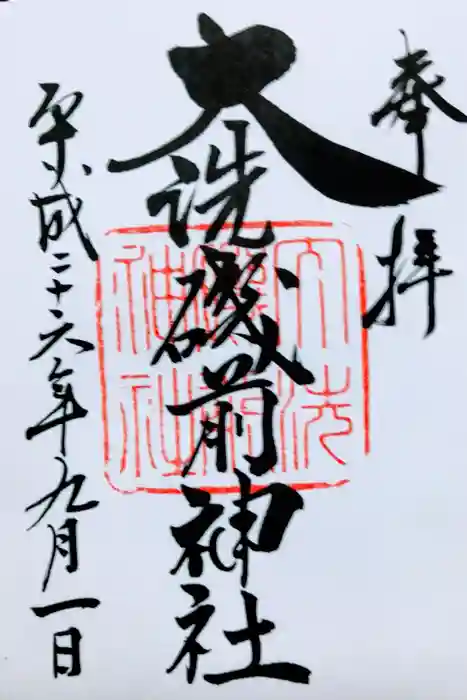 奉拝
大洗磯前神社
平成二十六年九月一日
大洗磯前神社